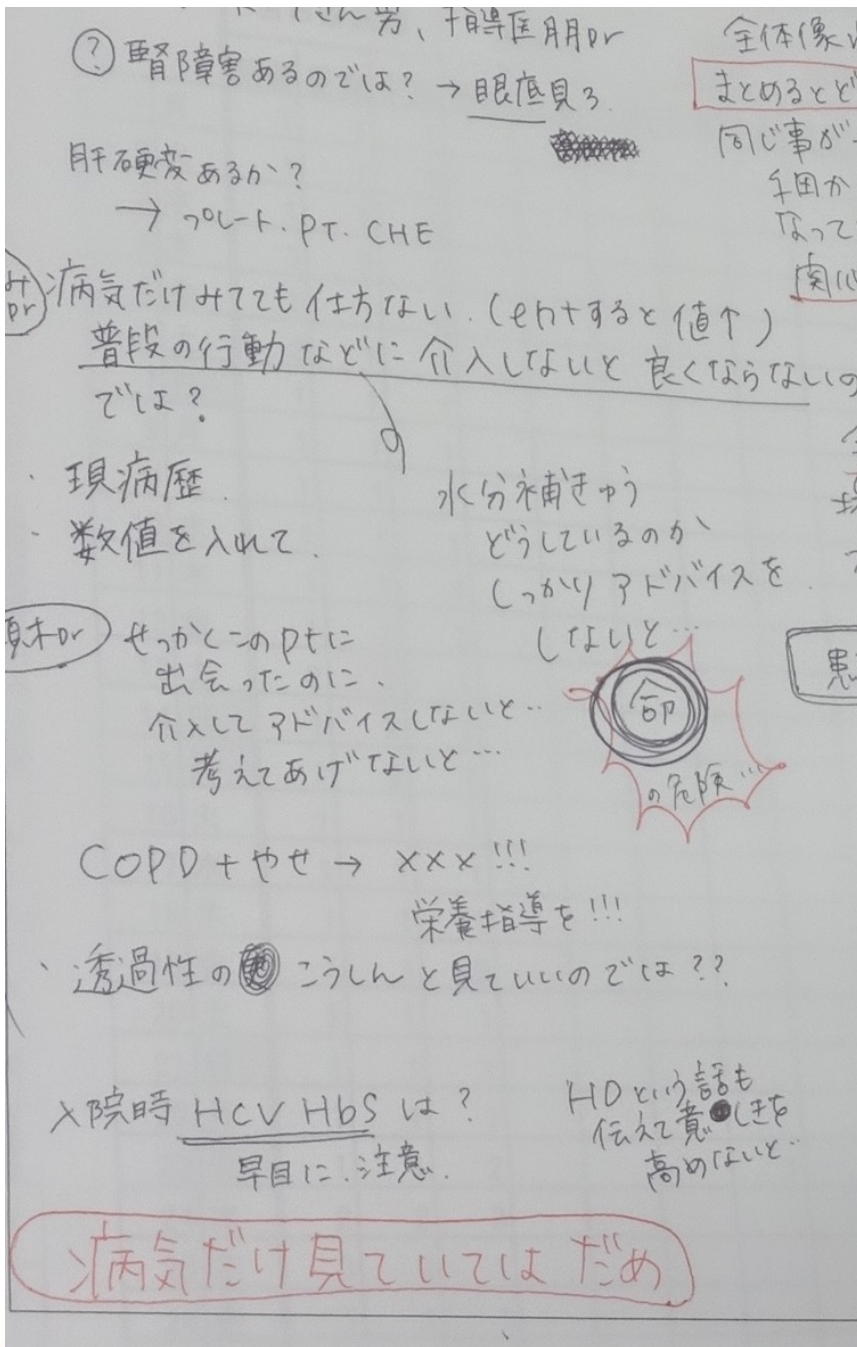 男、指導医 Dr
? 腎障害あるのでは? → 眼底見る.
肝硬変あるか?
→ プレート. PT. CHE
Dr 病気だけみてても仕方ない. (entすると値↑)
普段の行動などに介入しないと良くならないの
では?
・現病歴.
・数値を入れて.
水分補きゅう
どうしているのか
しっかりアドバイスを.
しないと…
命
の危険…
Dr せっかくこのptに
出会ったのに.
介入してアドバイスしないと…
考えてあげないと…
COPD + やせ → ×××!!!
栄養指導を!!!
・透過性の こうしんと見ていいのでは??
入院時 HCV HbS は?
早目に.注意.
HDという話も
伝えて意しきを
高めないと…
病気だけ見ていてはだめ
全体像
まとめると
同じ事が
なって
患